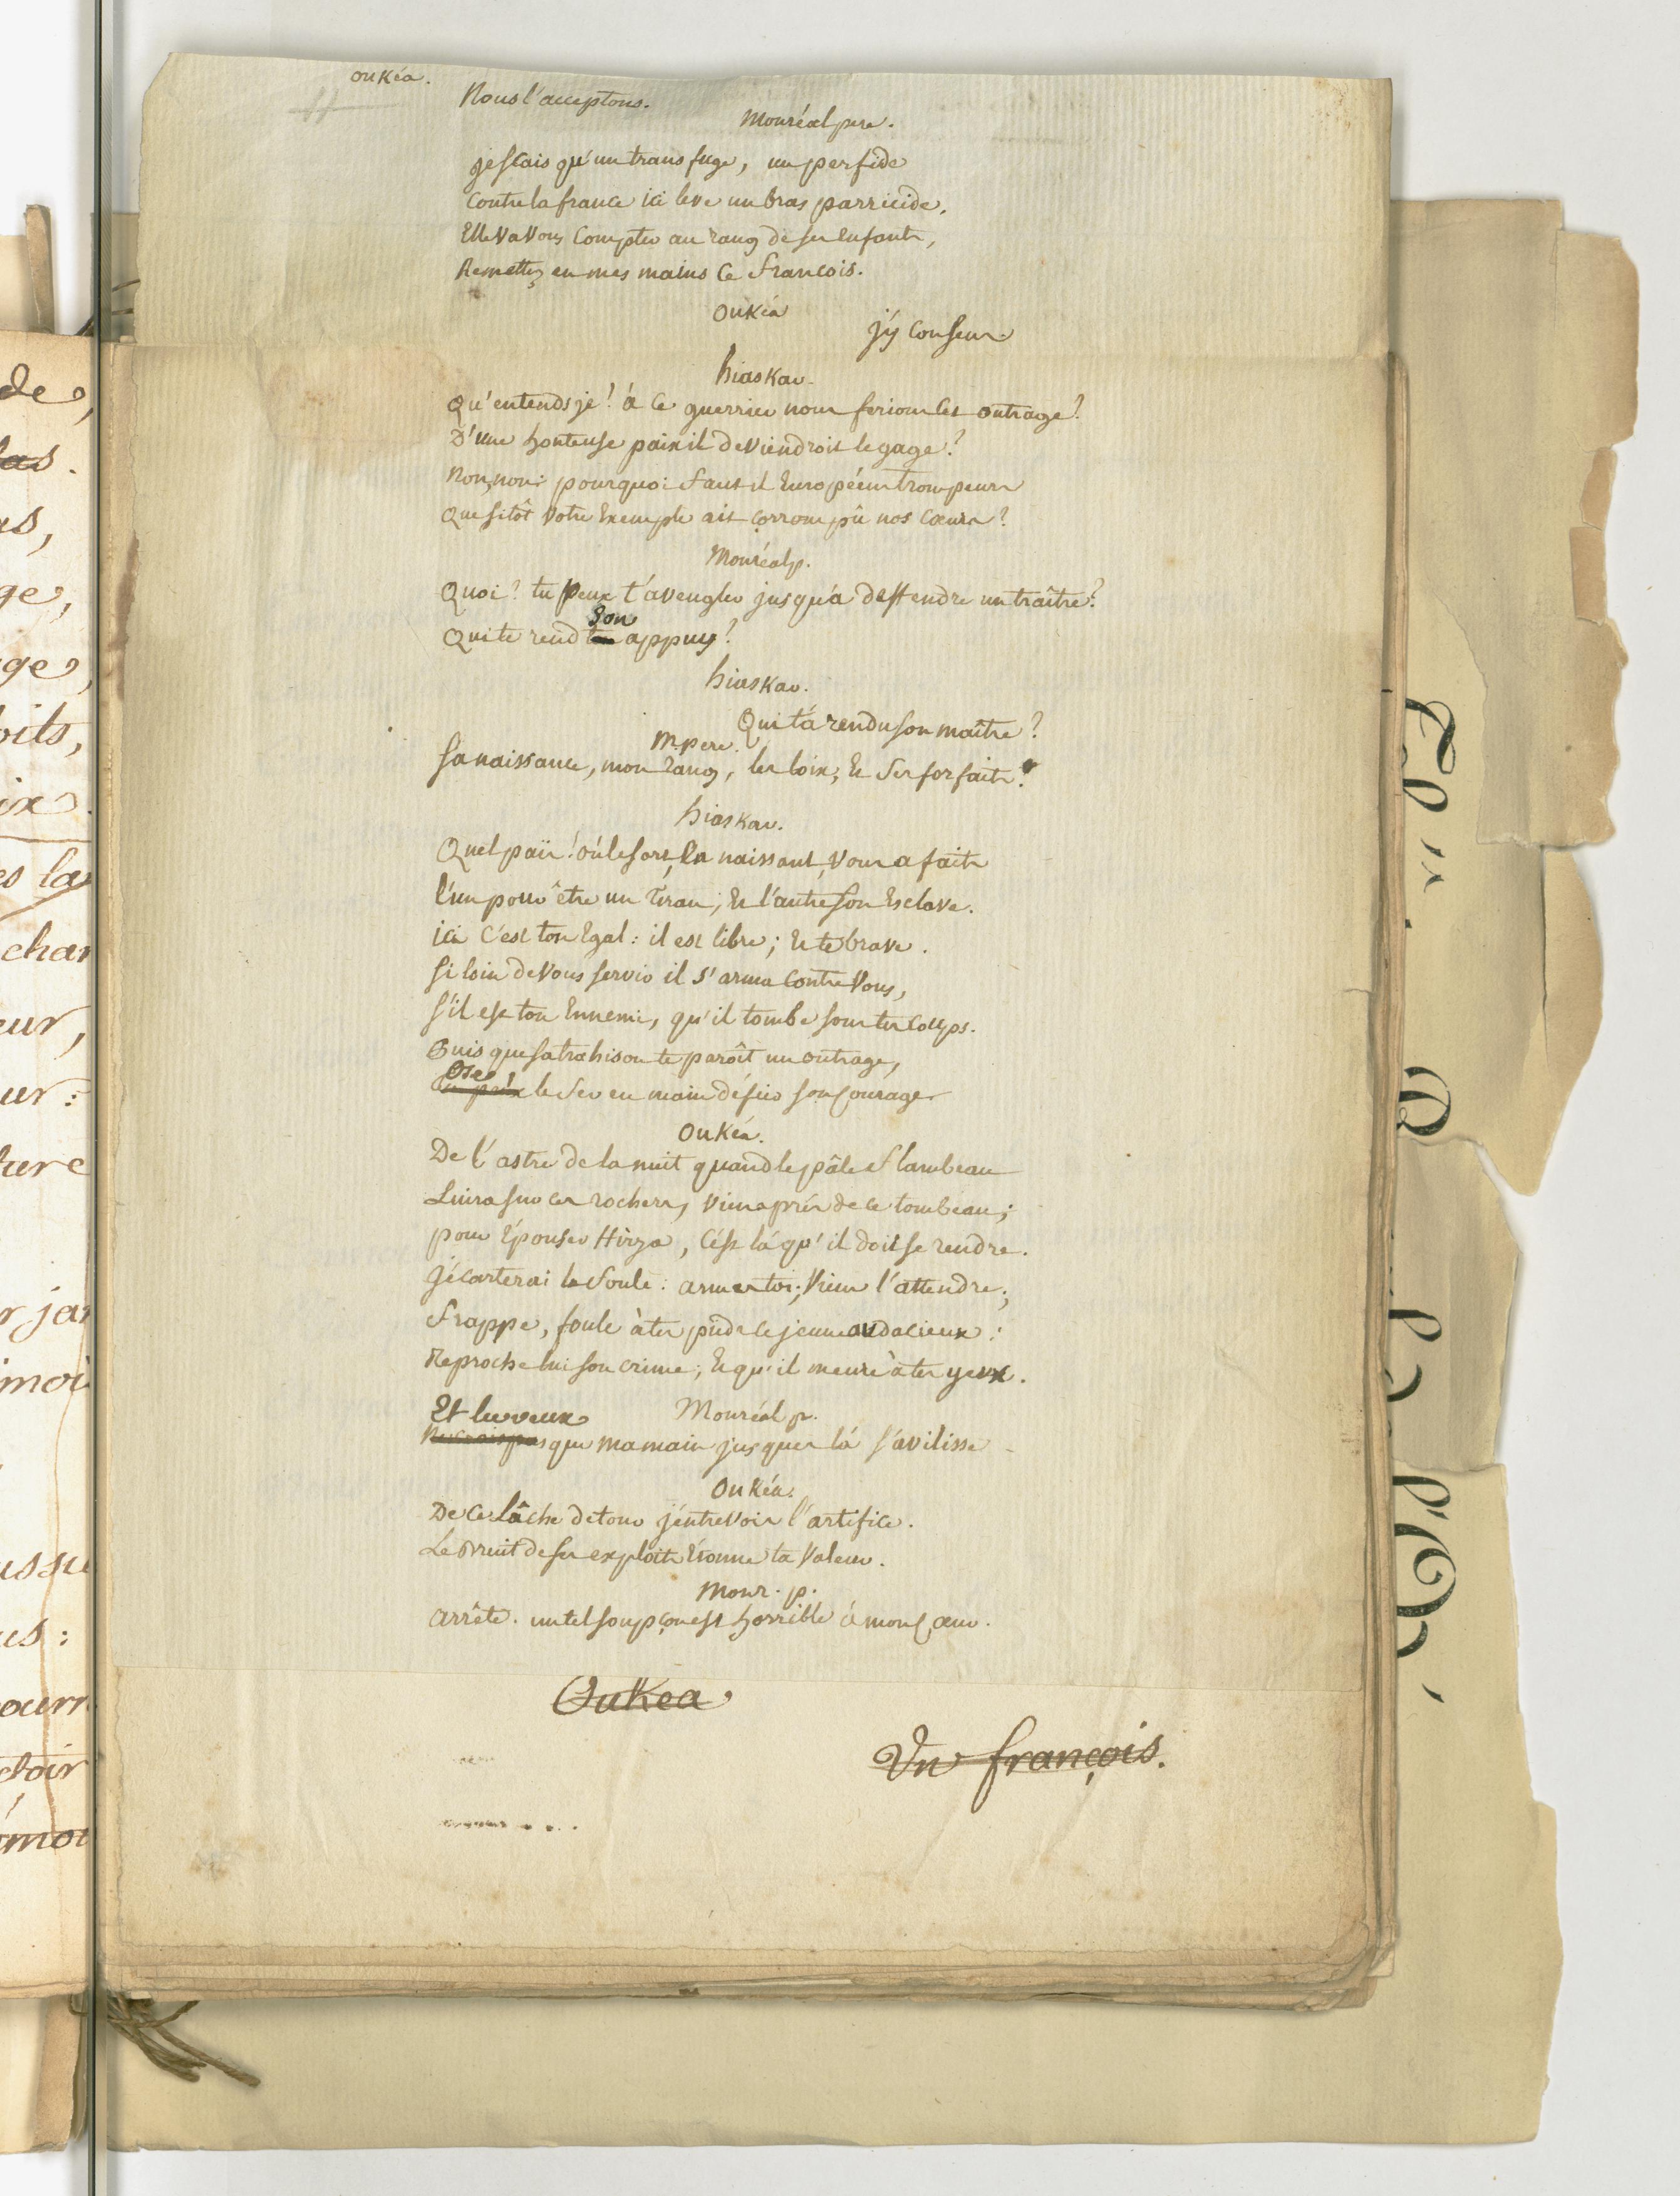 oukéa.
Nous l'acceptons.
Monréal pere.
je scais qu'un transfuge, un perfide
Contre la france ici leve un bras parricide.
Elle va vous compter au rang de ses Enfants,
Remettez en mes mains ce francois.
oukéa
j'y consens
hiaskar.
Qu'entends je! á ce guerrier nous ferions cet outrage?
D'une honteuse paix il deviendroit le gage?
Non, non: pourquoi faut il Européens trompeurs
Que sitôt votre Exemple ait corrompû nos cœurs?
Monréal p.
Quoi? tu peux t'aveugler jusqu'a deffendre un traître?
Son
Qui te rend ton appuy?
hiaskar.
Qui t'a rendu son maître?
M. pere.
Sa naissance, mon rang, les loix, Et ses forfaits.
hiaskar.
Quel païs! où le sort, En naissant, vous a faits
l'un pour être un Tiran, Et l'autre son Esclave.
ici c'est ton Egal: il est libre; Et te brave.
Si loin de vous servir il s'arma contre vous,
S'il est ton Ennemi, qu'il tombe sous tes coups.
Puisque sa trahison te paroît un outrage,
Ose
le fer en main défier son courage.
Oukéa.
De l'astre de la nuit quand le pâle flambeau
Luira sur ces rochers, viens près de ce tombeau;
pour Épouser Hirza, C'est là qu'il doit se rendre.
J'écarterai la foule: arme toi; Viens l'attendre;
frappe, foule à tes pieds ce jeune audacieux:
Reproche lui son crime; Et qu'il meure à tes yeux.
Et tu veux
Monréal p.
Ne crois pas que ma main jusques là s'avilisse
Oukéa.
De ce lâche detour j'entrevois l'artifice.
Le bruit de ses exploits Etonne ta valeur.
Monr. p.
arrête. un tel soupçon est horrible á mon cœur.
Oukea
Un françois.